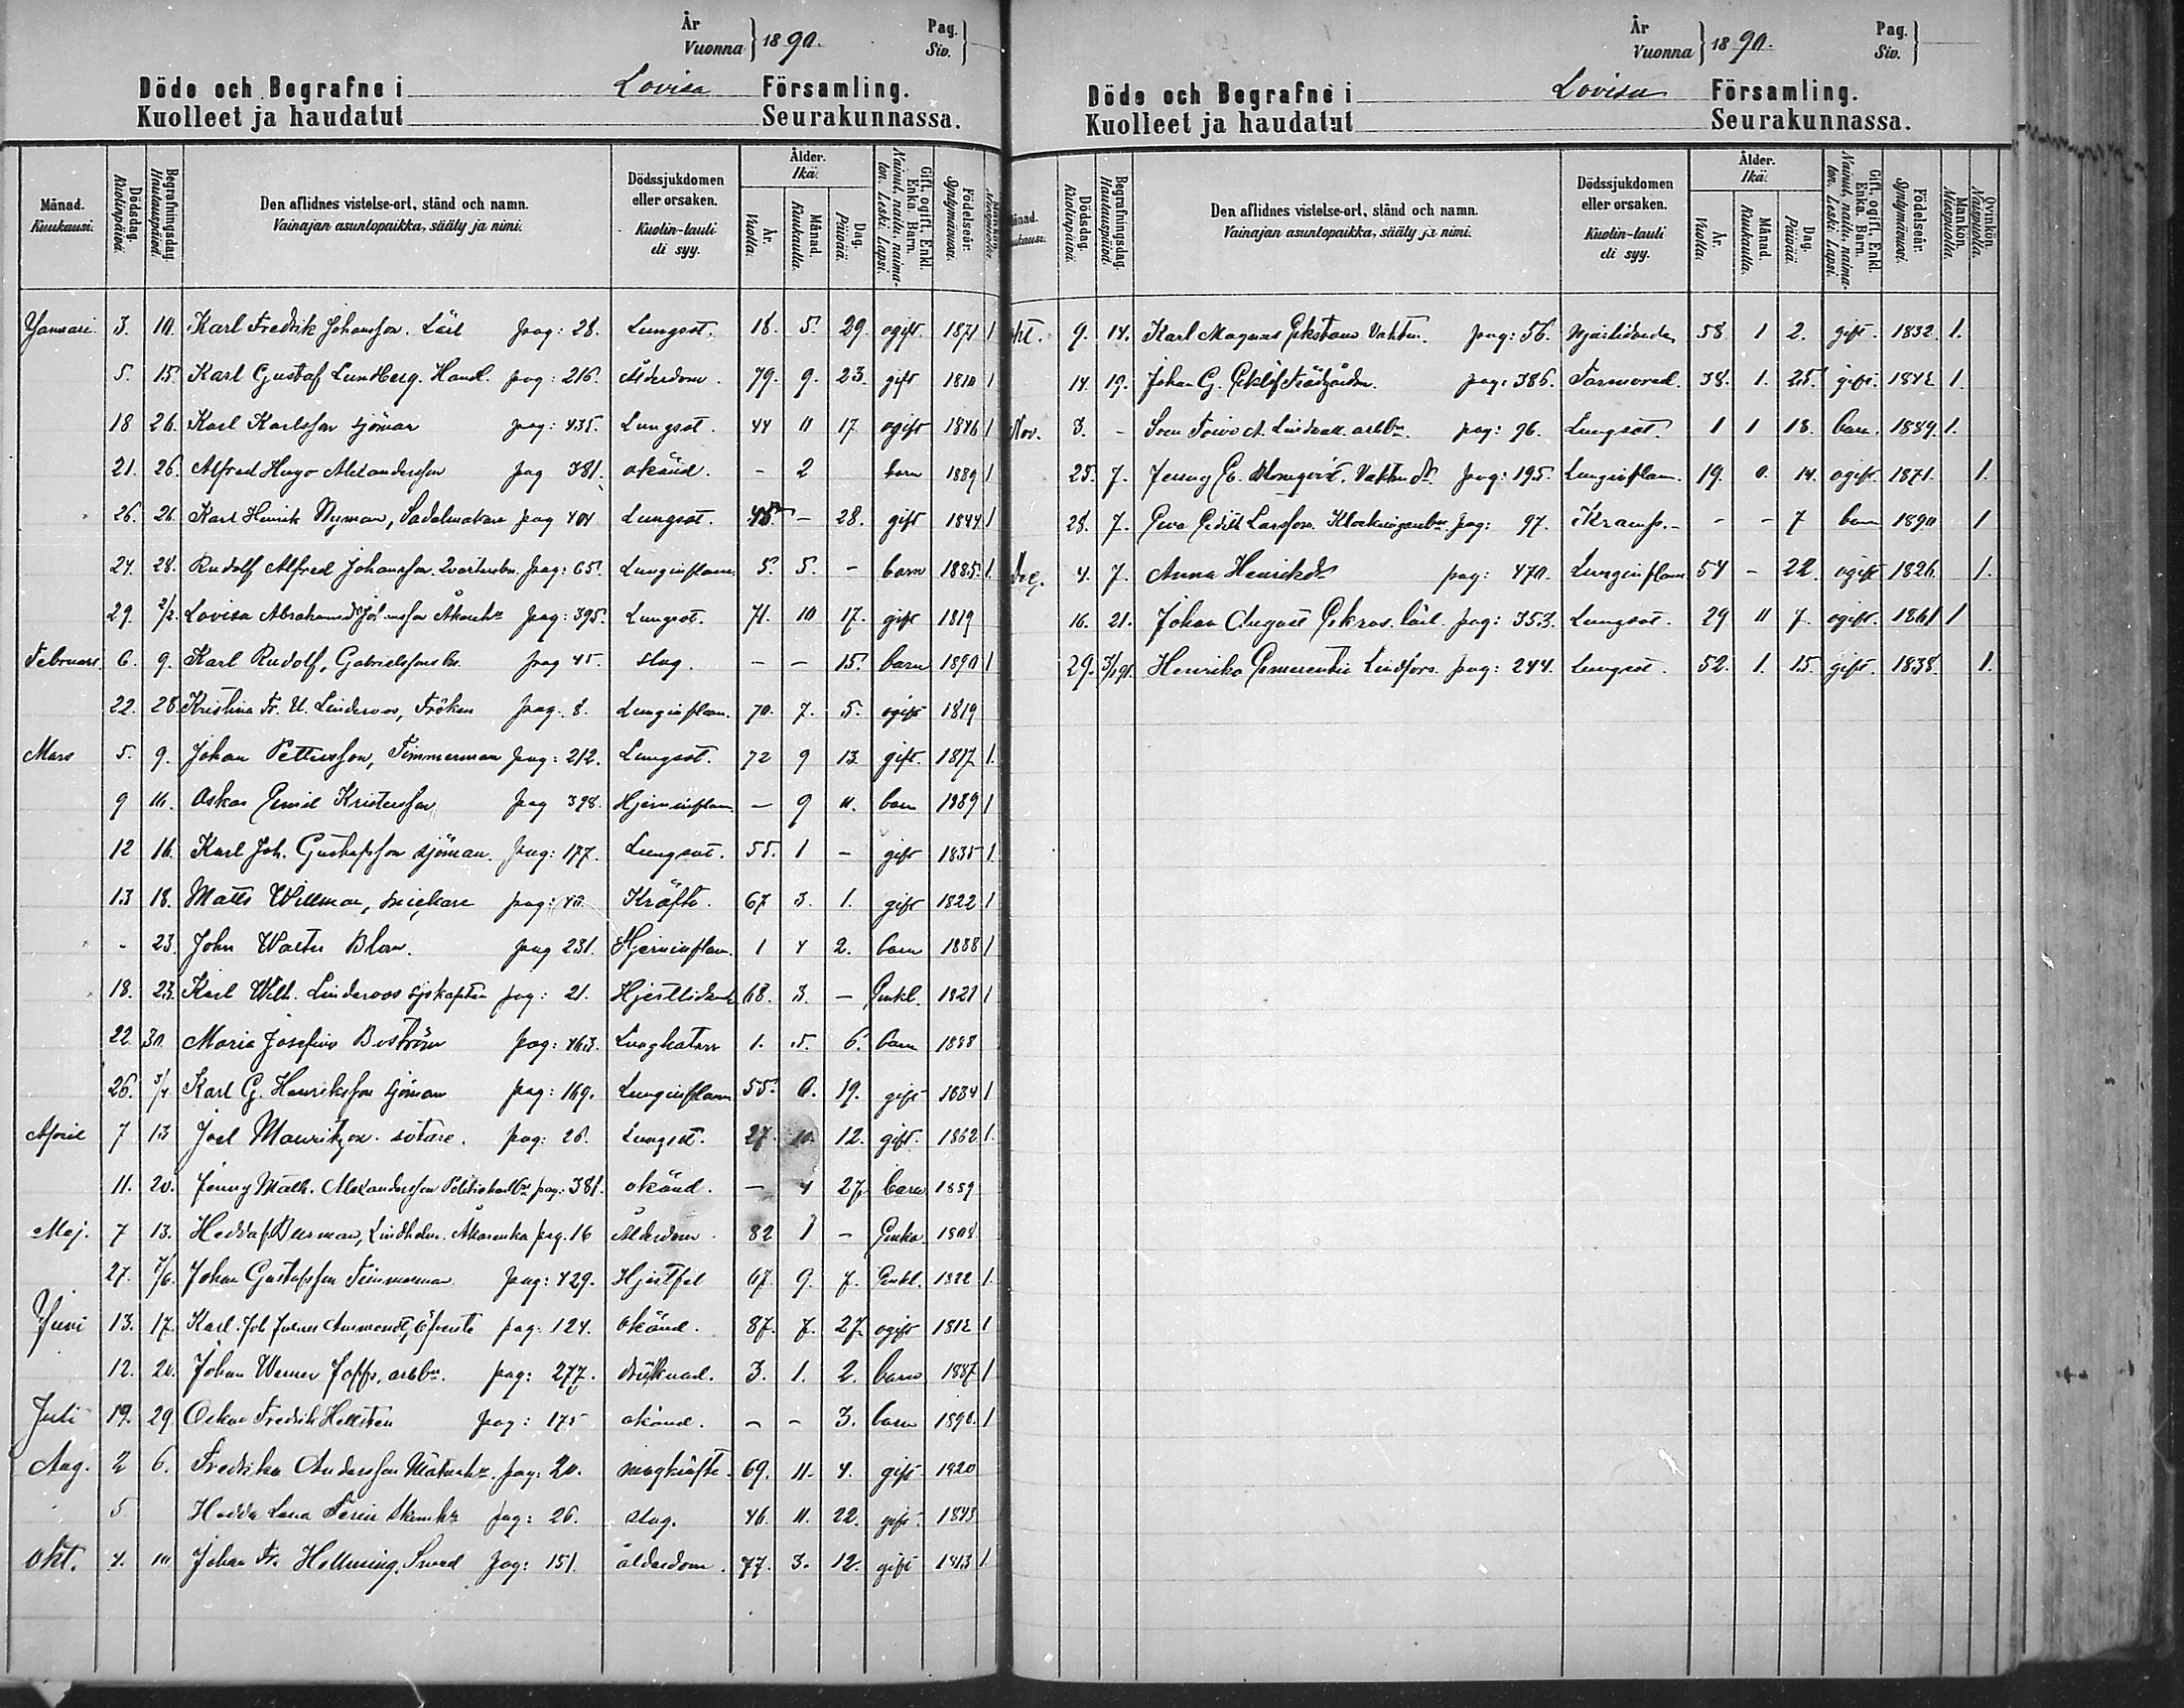 År
Vuonna } 1890.
Pag.
Siv. }
Döde och Begrafne i Lovisa Församling.
Kuolleet ja haudatut Seurakunnassa.
Månad. Kuukausi.
Dödsdag. Kuolinpäivä.
Begrafningsdag. Hautauspäivä.
Den aflidnes vistelse-ort, stånd och namn. Vainajan asuntopaikka, sääty ja nimi.
Dödssjukdomen eller orsaken. Kuolin-tauti eli syy.
Ålder. Ikä.
År. Vuotta.
Månad. Kuukautta.
Dag. Päivää.
Gift, ogift, Enkl. Enka. Barn. Nainut, naitu, naimaton. Leski. Lapsi.
Födelseår. Syntymävuosi.
Januari 3. 10. Karl Fredrik Johansson. Lärl pag: 28. Lungsot. 18. 5. 29. ogift. 1871 1
5. 15. Karl Gustaf Lundberg. Handl. pag: 216. Ålderdom. 79. 9. 23. gift 1810 1
18 26. Karl Karlsson sjöman pag: 435. Lungsot. 44 11 17. ogift 1846 1
21. 26. Alfred Hugo Alexandersson pag 381. okänd. - 2 barn 1889 1
26. 26. Karl Henrik Nyman, Sadelmakare pag 404 Lungsot. - 28. gift 1844 1
24. 28. Rudolf Alfred Johansson. pag: 65. Lunginflam. 5. 5. - barn 1885. 1.
29. 2/2. Lovisa Johansson pag: 395. Lungsot. 71. 10 17. gift 1819
Februari. 6. 9. Karl Rudolf, Gabrielsson pag 45. slag. - - 15. barn 1890 1
22. 28. Kristina Fr. U. Linderoos, Fröken pag. 8. Lunginflam. 70. 7. 5. ogift 1819
Mars 5. 9. Johan Pettersson, Timmerman pag: 212. Lungsot. 72 9 13. gift. 1817 1.
9 16. Oskar Emil Kristersson pag 398. Hjerninflam. - 9 11. barn 1889 1
12 16. Karl Joh. Gustafsson sjöman. pag: 177. Lungsot. 55. 1 - gift 1835 1
13 18. Matts Willman, snickare pag: Kräfta. 67 3. 1. gift 1822 1
- 23. John Walter Blom. pag 231. Hjerninflam. 1 4 2. barn 1888 1
18. 23. Karl Wilh. Linderoos sjökapten pag: 21. 68. 3. - Enkl. 1821 1
22. 30. Maria Josefina Boström pag: 463. Lungkatarr 1. 5. 6. barn 1888
26. 3/4 Karl G. Henriksson sjöman pag: 169. Lunginflam 55. 0. 19. gift 1834 1
April 7 13 Joel Mauritzon. sotare. pag: 26. Lungsot. 27. 10. 12. gift. 1862 1.
11. 20. Jenny Math. Alexandersson pag: 381. okänd. - 4 27. barn 1889
Maj. 7 13. Hedda Lindholm. pag. 16 Ålderdom. 82 1 - Enka 1808
27. 1/6. Johan Gustafsson Timmerman pag: 429. Hjertfel 67. 9. 7. Enkl. 1822 1.
Juni 13. 17. Karl. Joh pag: 124. okänd. 87. 7. 27. ogift 1812 1
12. 20. Johan Werner pag: 277. drunknad. 3. 1. 2. barn 1887 1
Juli 19. 29 Oskar Fredrik Hellsten pag: 175 okänd. - - 3. barn 1890. 1
Aug. 2 6. Fredrika Andersson pag: 20. magkräfta. 69. 11. 4. gift 1820
5 Hedda Lena pag: 26. slag. 46. 11. 22. gift. 1843
Okt. 4. 10 Johan Fr. Hollming. Smed pag: 151. ålderdom. 77. 3. 12. gift 1813 1.
År
Vuonna } 1890.
Pag.
Siv. }
Döde och Begrafne i Lovisa Församling.
Kuolleet ja haudatut Seurakunnassa.
Dödsdag. Kuolinpäivä.
Begrafningsdag. Hautauspäivä.
Den aflidnes vistelse-ort, stånd och namn. Vainajan asuntopaikka, sääty ja nimi.
Dödssjukdomen eller orsaken. Kuolin-tauti eli syy.
Ålder. Ikä.
År. Vuotta.
Månad. Kuukautta.
Dag. Päivää.
Gift, ogift, Enkl. Enka. Barn. Nainut, naitu, naimaton. Leski. Lapsi.
Födelseår. Syntymävuosi.
Mankön. Miespuolia.
Qvinkön. Naispuolia.
9. 14. Karl Magnus Ekstam Vaktm. pag: 56. 58. 1 2. gift. 1832. 1.
14. 19. Johan G. Eklöf pag: 386. 38. 1. 25. gift. 1842 1.
Nov. 3. - Sven Toivo A. Lindvall. arb. pag: 96. Lungsot. 1 1 18. barn. 1889. 1.
25. 7. Jenny E. Blomqvist. pag: 195. Lunginflam. 19. 0. 14. ogift 1871. 1.
28. 7. Eva Edith Larsson. pag: 97. Kramp. - - 7 barn 1890 1
Dec. 4. 7. Anna Henriksdr pag: 470. Lunginflam 54 - 22. ogift 1826. 1.
16. 21. Johan August Ekroos. lärl. pag: 353. Lungsot. 29 11 7. ogift. 1861 1
29. Henrika Emerentia Lindfors. pag: 244. Lungsot. 52. 1. 15. gift. 1838. 1.